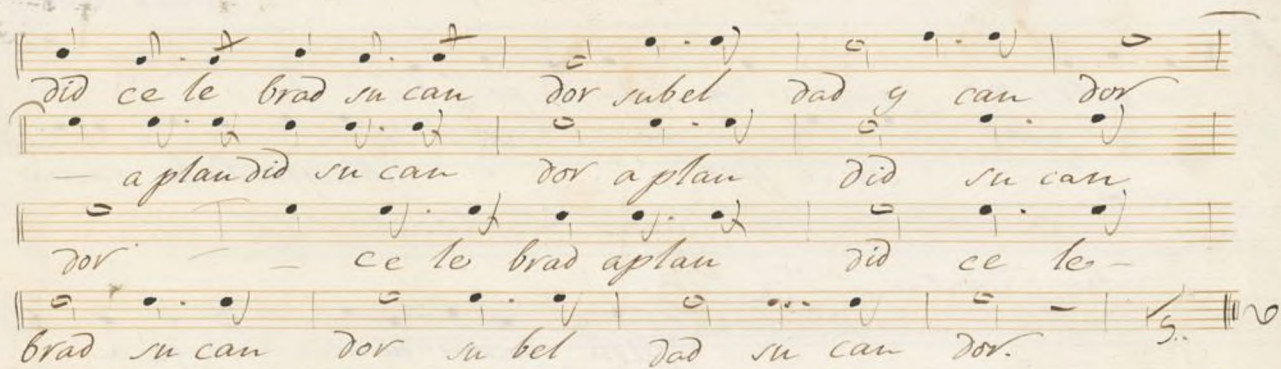 did ce le brad su can dor subel dad y can dor
a plau did su can dor a plau did su can
dor ce le brad aplau did ce le-
brad su can dor su bel dad su can dor.